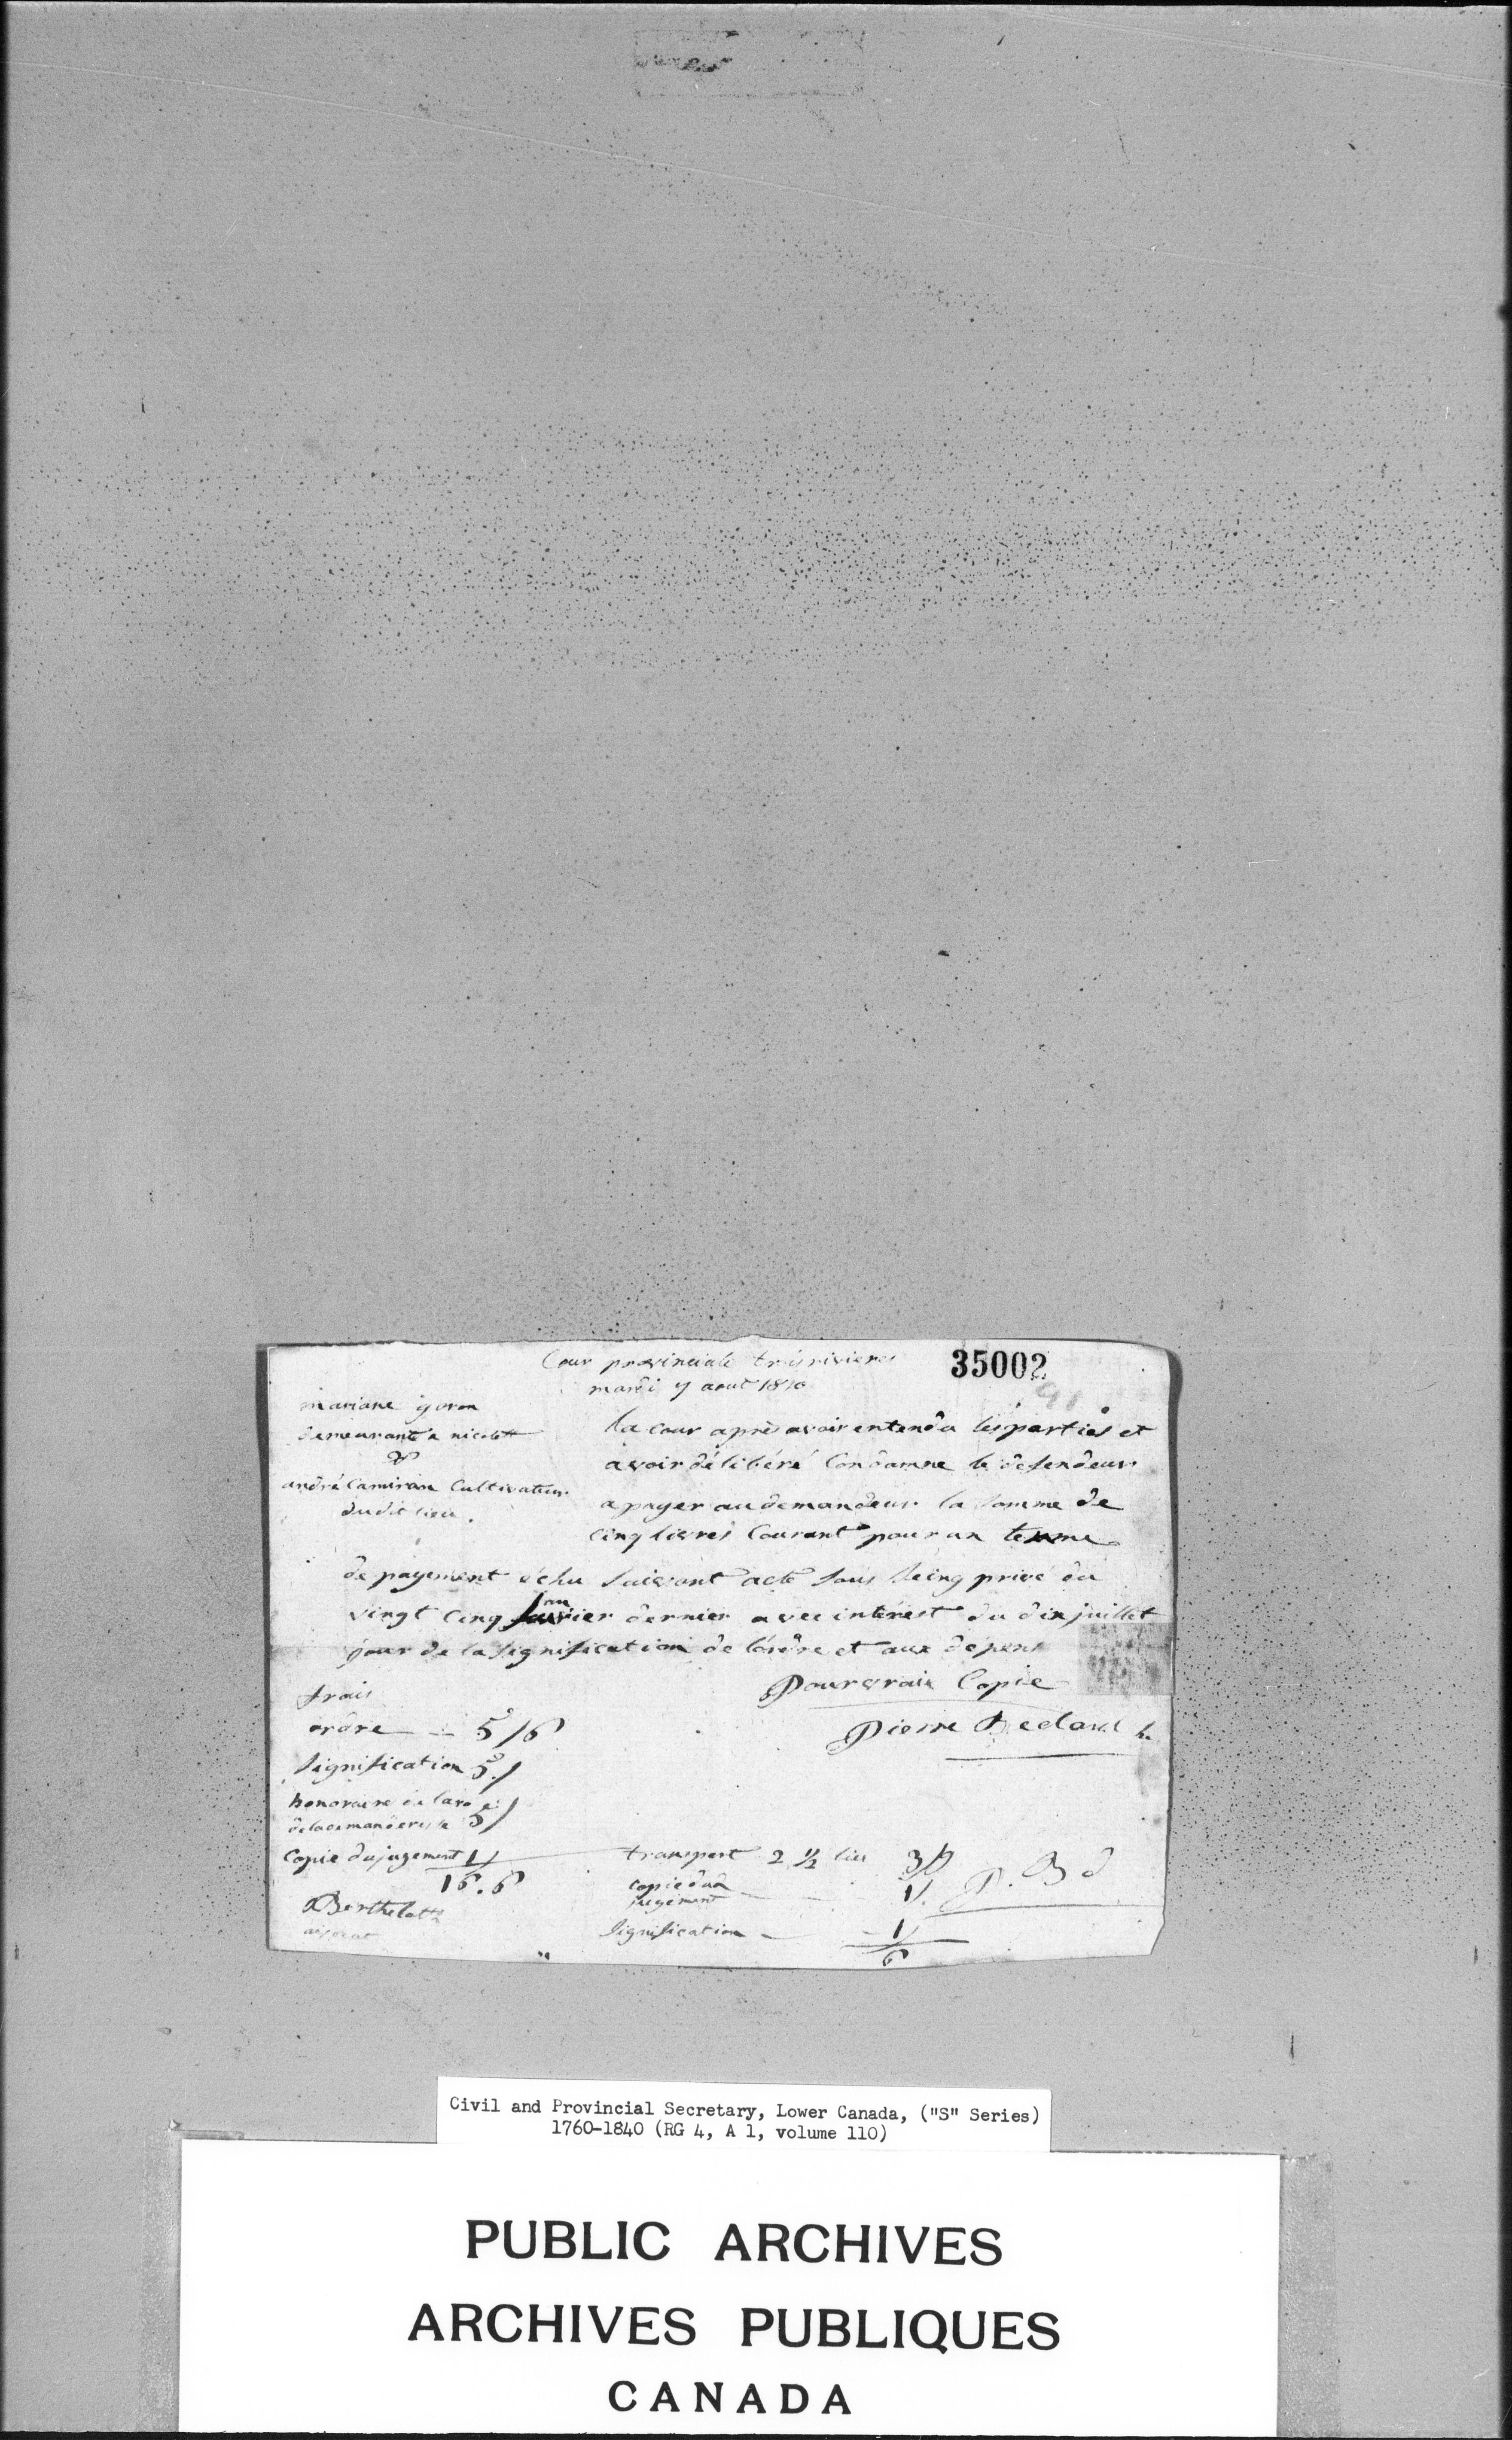 35002
Cour provinciale troisrivieres
mardi 7 aout 1810
mariane goron
demeurante a nicolett
vs
andré Camiran Cultivateur
dudit lieu.
La cour après avoir entendu les parties et
avoir délibéré Condamne le defendeur
a payer au demandeur la somme de
cinq livres Courant pour un terme
de payement échu suivant acte sous seing privé du
vingt cinq janvier dernier avec intérest du dix juillet
jour de la signification de l'ordre et aux dépens
Pour vraie Copie
Pierre Bedard
frais
ordre — 5/6
signification 5/
honoraire de l'avo
de la demanderesse 5/
Copie du jugement 1/
16.6
Berthelott
avocat
transport 2 ½ lieu
copie du
jugement — 1/.
signification — 1/
6
P. Bd
Civil and Provincial Secretary, Lower Canada, ("S" Series)
1760-1840 (RG 4, A 1, volume 110)
PUBLIC ARCHIVES
ARCHIVES PUBLIQUES
CANADA